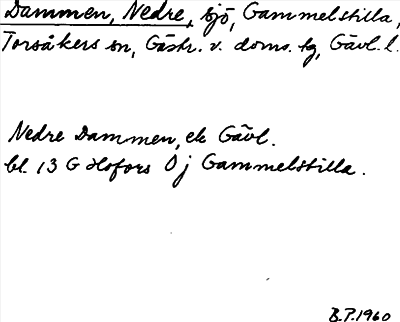 Dammen, Nedre, sjö, Gammelstilla,
Torsåkers sn, Gästr. v. doms. tg, Gävl. l.
Nedre Dammen, ek Gävl.
bl. 13 G Hofors 0 j Gammelstilla.
B.P. 1960